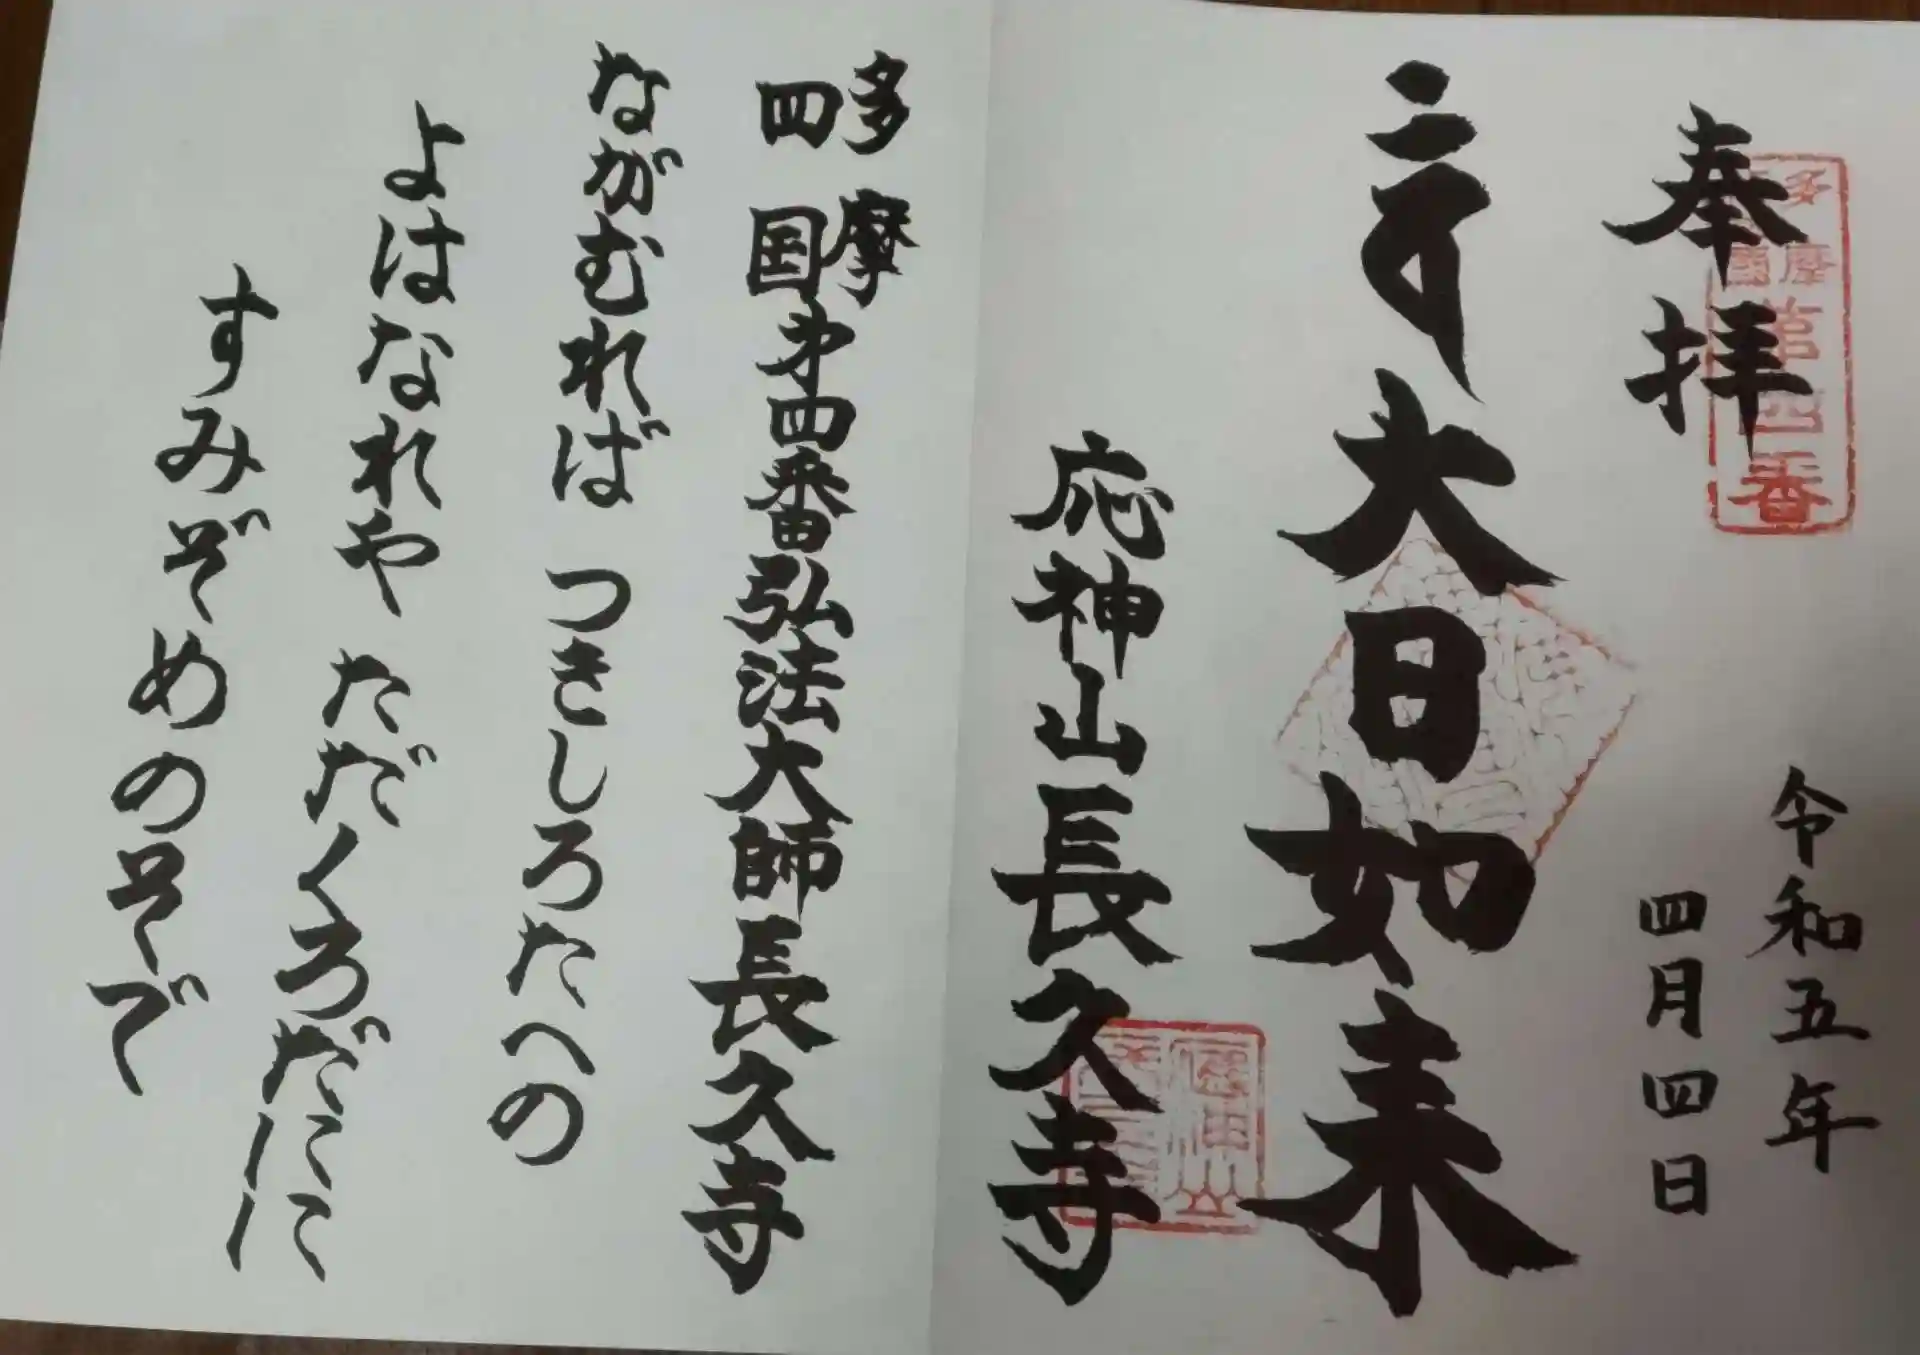 令和五年
四月四日
奉拝
多摩
四國
第四番
大日如来
応神山長久寺
多摩
四国
第四番弘法大師長久寺
ながむれば つきしろたへの
よはなれや ただくろだにに
すみぞめのそで